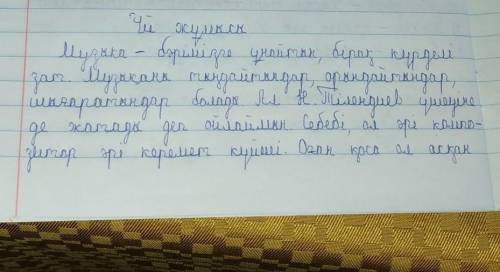 Үй жұмысы
Музыка – бәрімізге ұнайтын, бірақ күрделі
зат. Музыканы тыңдайтындар, орындайтындар,
шығаратындар болады. Ал Н. Тілендиев үшеуіне
де жатады деп ойлаймын. Себебі, ол әрі компо-
зитор әрі керемет күйші. Оған қоса ол асқан